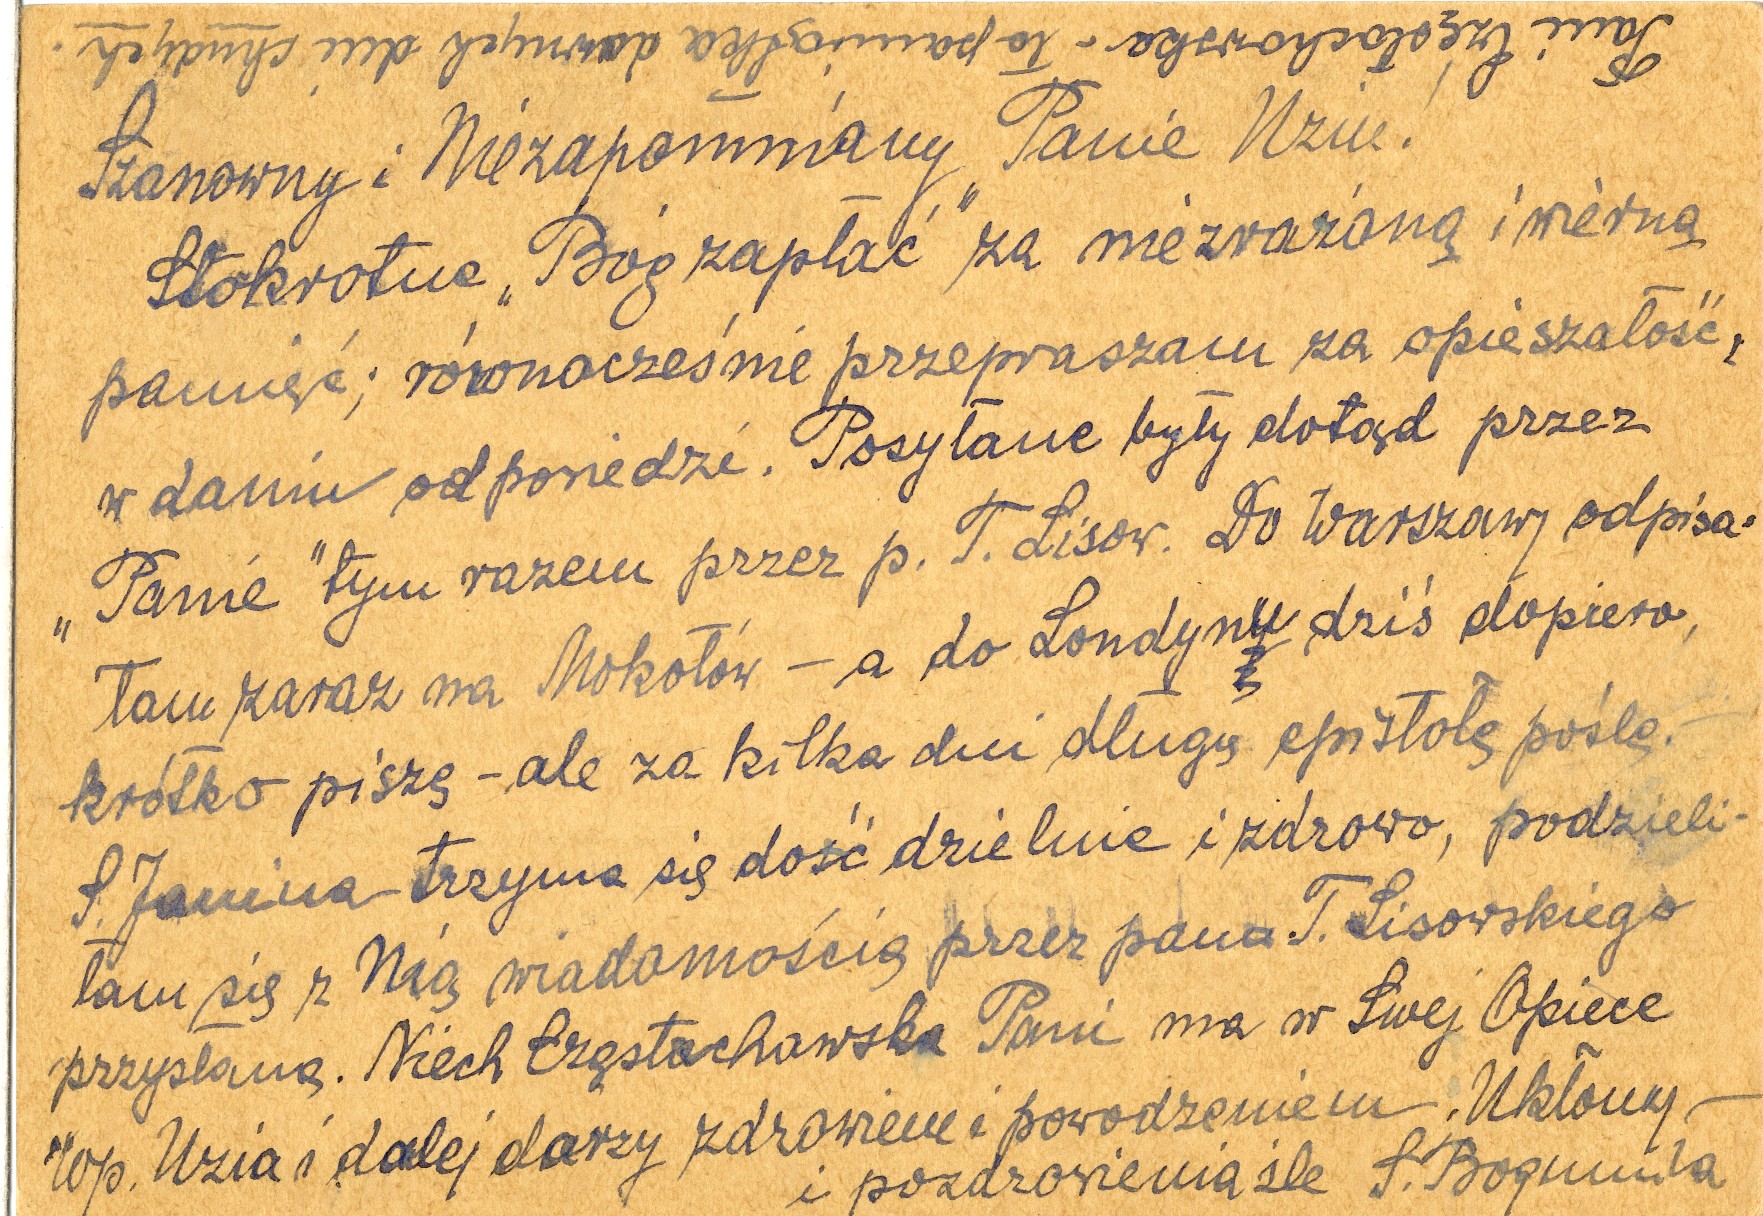 Pani Częstochowska - to pamiątka dawnych dni chudych.
Szanowny i Niezapomniany Panie Uziu!
Stokrotne „Bóg zapłać" za niezrażoną i wierną
pamięć; równocześnie przepraszam za opieszałość,
w daniu odpowiedzi. Posyłane były dotąd przez
„Panie" tym razem przez p. T. Lisow. Do Warszawy odpisa-
łam zaraz na Mokotów - a do Londynu dziś dopiero,
krótko piszę - ale za kilka dni długą epistołę poślę. -
S. Janina trzyma się dość dzielnie i zdrowo, podzieli-
łam się z Nią wiadomością przez pana T. Lisowskiego
przysłaną. Niech Częstochowska Pani ma w Swej Opiece
Wp. Uzia i dalej darzy zdrowiem i powodzeniem. Ukłony -
i pozdrowienia śle S. Bogumiła